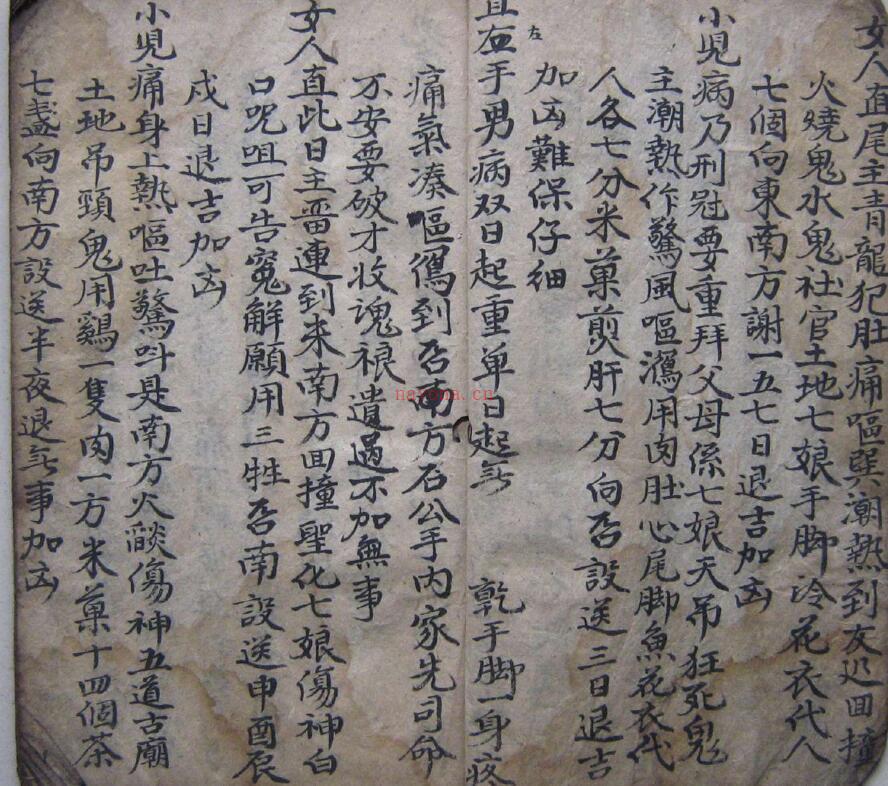 女人直尾主青龍犯肚痛嘔巽潮熱到友迟回撞
火燒鬼水鬼社官土地七娘手脚冷花衣代人
七個向東南方謝一五七日退吉加凶
小児病乃刑尅要重拜父母係七娘天吊狂死鬼
主潮熱作驚風嘔瀉用肉肚心尾脚魚花衣代
人各七分米菓煎肝七分向西設送三日退吉
加凶難保仔細
左
直右手男病双日起重单日起兯 乾手脚一身疼
痛氣凑嘔到西南方石公手内家先司命
不安要破才收魂禄遺過不加無事
女人直此日主畨連到来南方回撞聖化七娘傷神白
口咒咀可告冤解願用三牲西南設送申酉辰
戌日退吉加凶
小児痛身上熱嘔吐驚呌是南方火燄傷神五道古廟
土地吊頸鬼用鷄一隻肉一方米菓十四個茶
七盞向南方設送半夜退無事加凶
nayona.cn